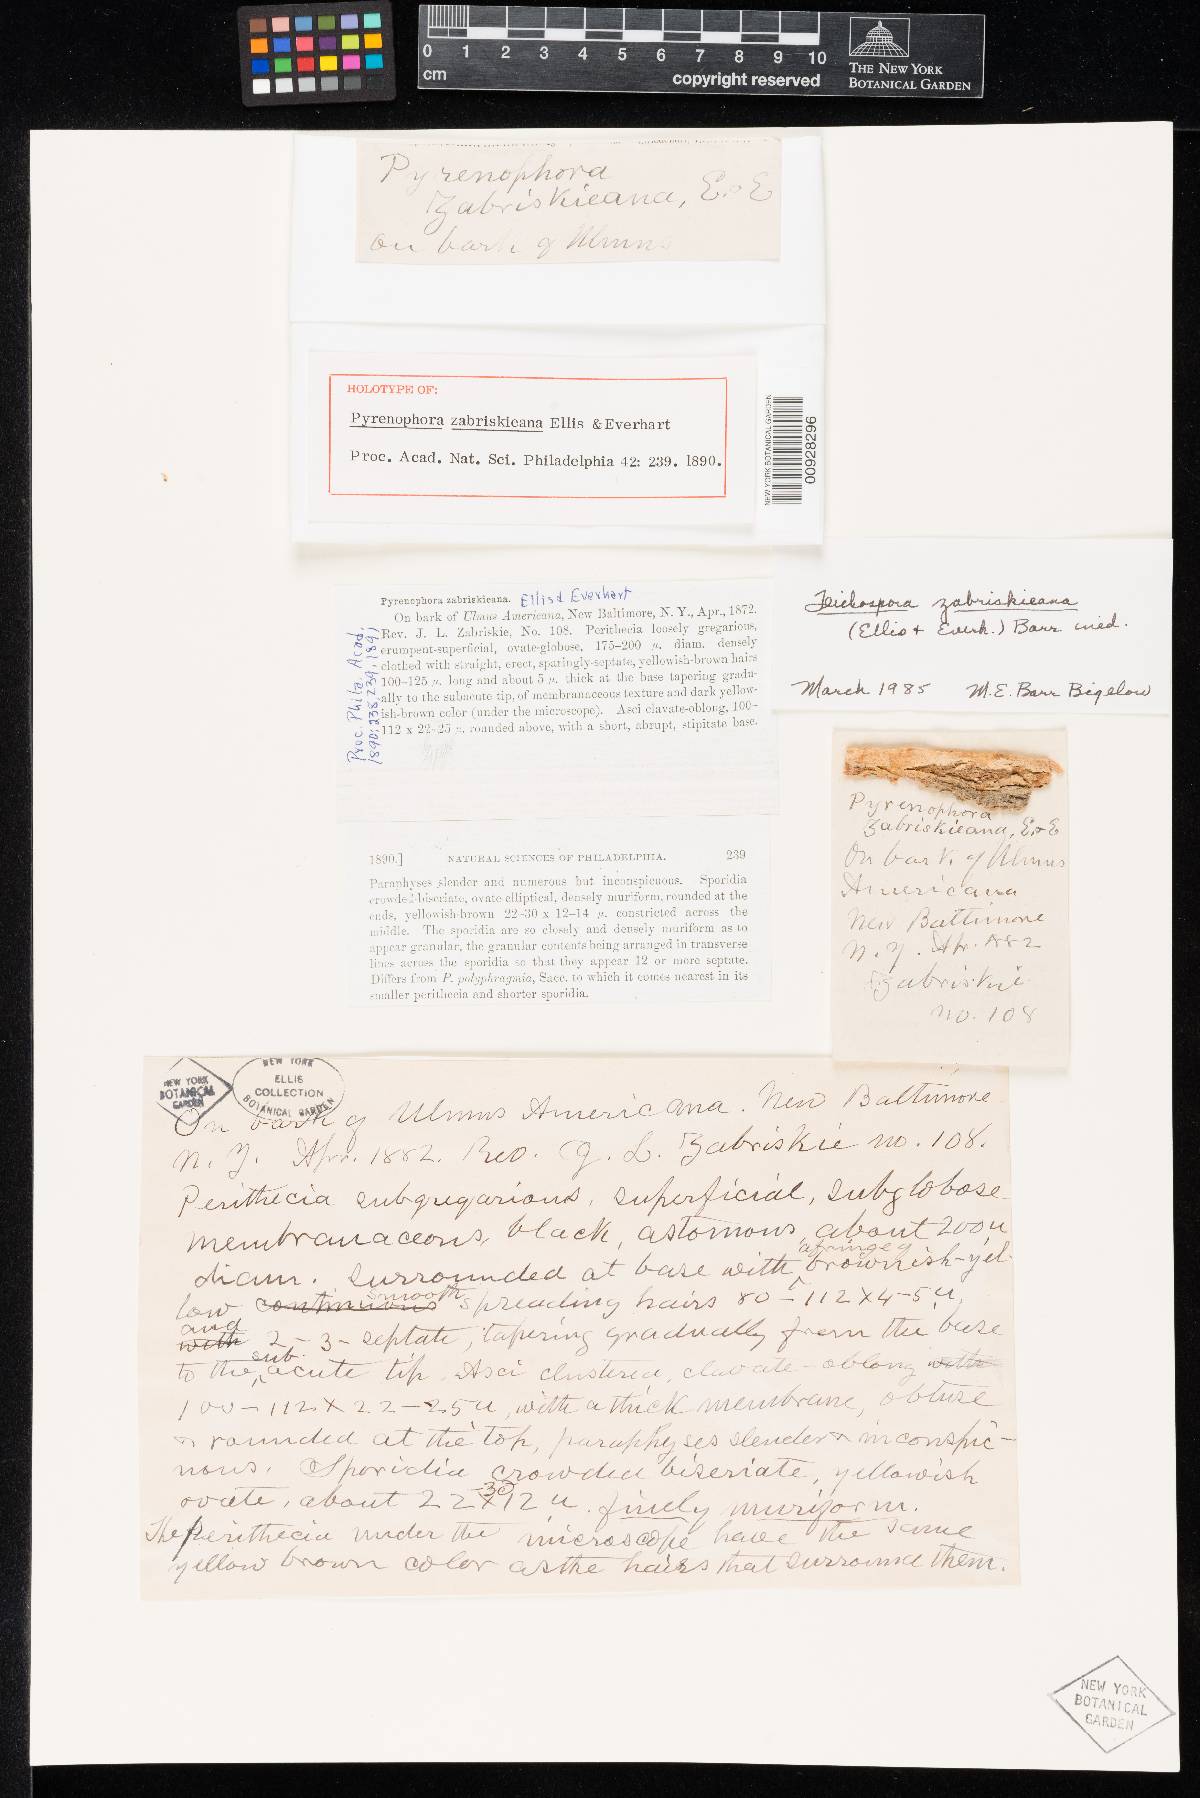 0 1 2 3 4 5 6 7 8 9 10
cm
copyright reserved
THE NEW YORK
BOTANICAL GARDEN
Pyrenophora
Zabriskieana, E. & E
on bark of Ulmus
HOLOTYPE OF:
Pyrenophora zabriskieana Ellis & Everhart
Proc. Acad. Nat. Sci. Philadelphia 42: 239. 1890.
NEW YORK BOTANICAL GARDEN
00928296
Pyrenophora zabriskieana. Ellis & Everhart
On bark of Ulmus Americana, New Baltimore, N. Y., Apr., 1872.
Rev. J. L. Zabriskie, No. 108. Perithecia loosely gregarious,
erumpent-superficial, ovate-globose, 175–200 µ. diam. densely
clothed with straight, erect, sparingly-septate, yellowish-brown hairs
100–125 µ. long and about 5 µ. thick at the base tapering gradu-
ally to the subacute tip, of membranaceous texture and dark yellow-
ish-brown color (under the microscope). Asci clavate-oblong, 100–
112 x 22–25 µ, rounded above, with a short, abrupt, stipitate base.
Proc. Phila. Acad.
1890: 238, 239, 1891
Teichospora zabriskieana
(Ellis & Everh.) Barr ined.
March 1985 M.E. Barr Bigelow
1890.] NATURAL SCIENCES OF PHILADELPHIA. 239
Paraphyses slender and numerous but inconspicuous. Sporidia
crowded-biseriate, ovate elliptical, densely muriform, rounded at the
ends, yellowish-brown 22–30 x 12–14 µ. constricted across the
middle. The sporidia are so closely and densely muriform as to
appear granular, the granular contents being arranged in transverse
lines across the sporidia so that they appear 12 or more septate.
Differs from P. polyphragmia, Sacc. to which it comes nearest in its
smaller perithecia and shorter sporidia.
Pyrenophora
Zabriskieana, E. & E
On bark of Ulmus
Americana
New Baltimore
N. Y. Apr. 1882
Zabriskie
no. 108
NEW YORK
BOTANICAL
GARDEN
NEW YORK
ELLIS
COLLECTION
BOTANICAL GARDEN
On bark of Ulmus Americana. New Baltimore
N. Y. Apr. 1882. Rev. J. L. Zabriskie no. 108.
Perithecia subgregarious, superficial, subglobose
membranaceous, black, astomous, about 200 u
diam. surrounded at base with a fringe of brownish-yel-
low continuous smooth spreading hairs 80–112 x 4–5 u,
with and 2–3-septate, tapering gradually from the base
to the sub. acute tip. Asci clustered, clavate-oblong with
100–112 x 22–25 u, with a thick membrane, obtuse
& rounded at the top, paraphyses slender & inconspic-
uous. Sporidia crowded biseriate, yellowish
ovate, about 22–30 x 12 u. finely muriform.
The Perithecia under the microscope have the same
yellow brown color as the hairs that surround them.
NEW YORK
BOTANICAL
GARDEN